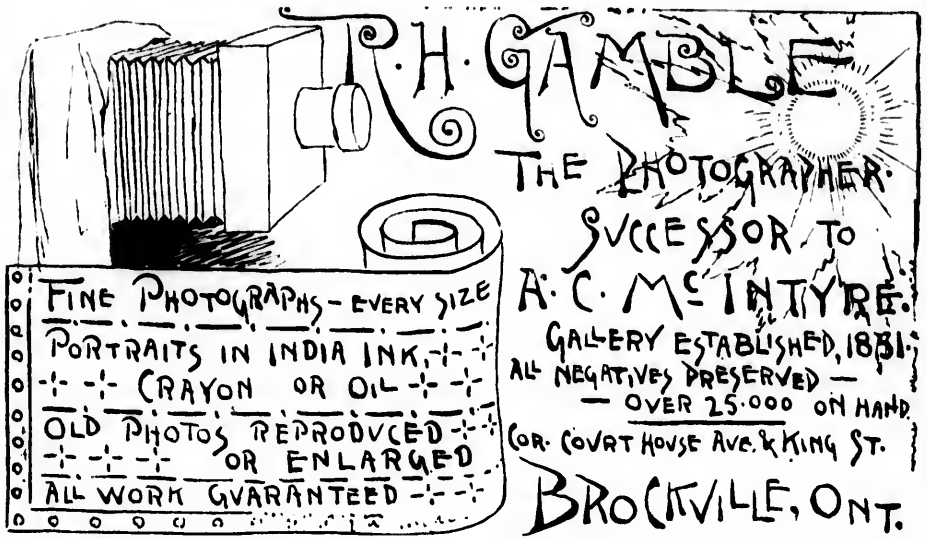 R. H. GAMBLE
THE PHOTOGRAPHER.
SUCCESSOR TO
A. C. McINTYRE.
GALLERY ESTABLISHED,
ALL NEGATIVES PRESERVED —
— OVER 25.000 ON HAND.
COR. COURT HOUSE AVE. & KING ST.
BROCKVILLE, ONT.
FINE PHOTOGRAPHS — EVERY SIZE
PORTRAITS IN INDIA INK,
CRAYON OR OIL
OLD PHOTOS REPRODUCED
OR ENLARGED
ALL WORK GUARANTEED